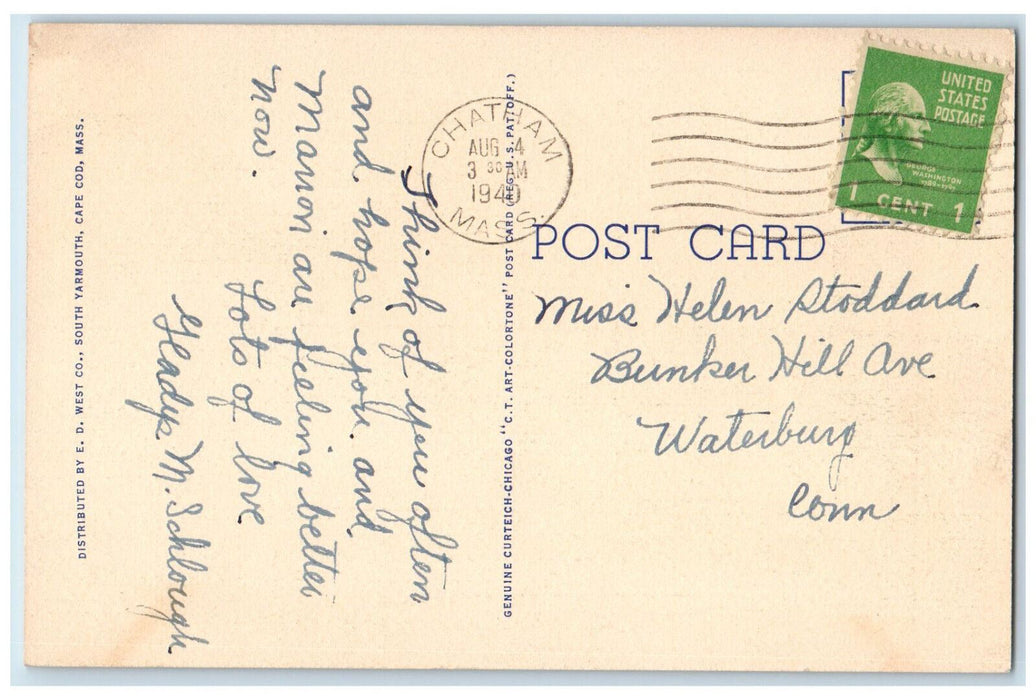 DISTRIBUTED BY E. D. WEST CO., SOUTH YARMOUTH, CAPE COD, MASS.
Think of you often
and hope you and
Marrion are feeling better
now.
Lots of love
Gladys M. Schlough
GENUINE CURTEICH-CHICAGO "C.T. ART-COLORTONE" POST CARD (REG. U.S. PAT. OFF.)
CHATHAM
AUG 4
3 30 AM
1940
MASS.
UNITED
STATES
POSTAGE
GEORGE
WASHINGTON
1789-1797
1 CENT 1
POST CARD
Miss Helen Stoddard
Bunker Hill Ave
Waterbury
Conn